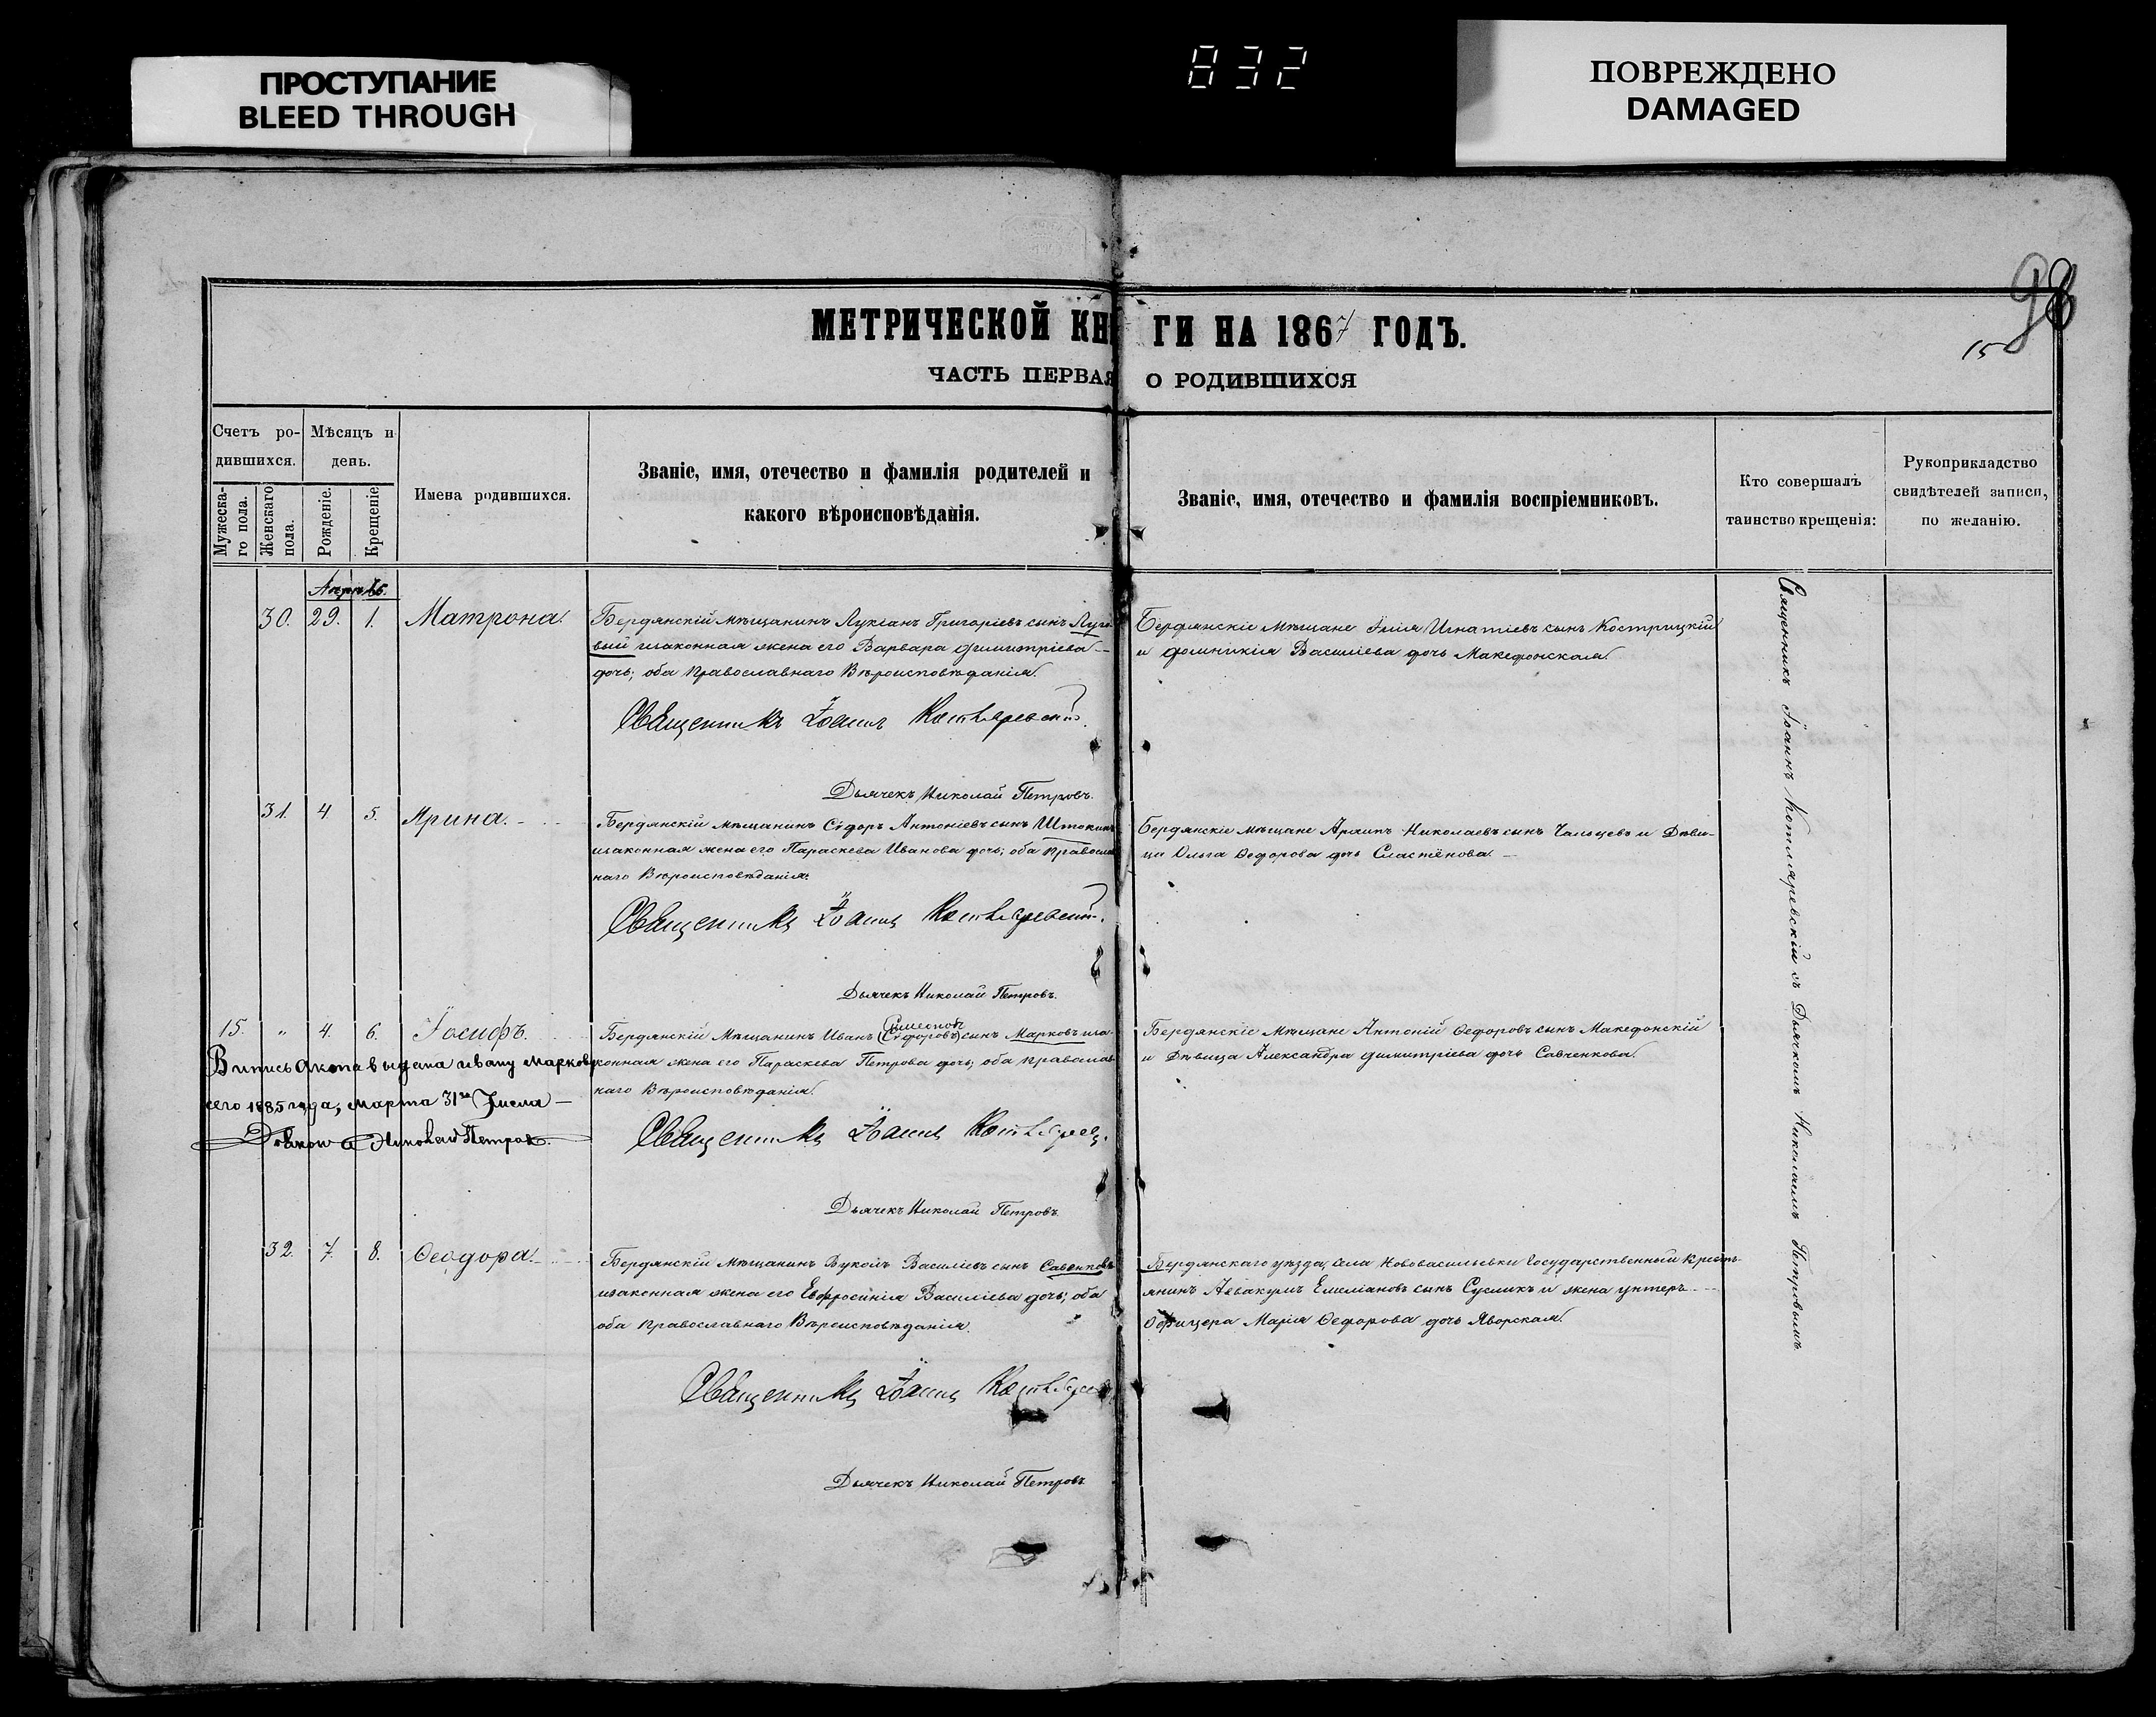 ПРОСТУПАНИЕ
BLEED THROUGH
832
ПОВРЕЖДЕНО
DAMAGED
98
15
МЕТРИЧЕСКОЙ КНИГИ НА 1867 ГОДЪ.
ЧАСТЬ ПЕРВАЯ О РОДИВШИХСЯ
Счетъ ро-
дившихся.
Мужеска-
го пола.
Женскаго
пола.
Мѣсяцъ и
день.
Рожденіе.
Крещеніе
Имена родившихся.
Званіе, имя, отечество и фамилія родителей и
какого вѣроисповѣданія.
Званіе, имя, отечество и фамилія воспріемниковъ.
Кто совершалъ
таинство крещенія:
Рукоприкладство
свидѣтелей записи,
по желанію.
30. 29. 1. Матрона.
Бердянскій мѣщанинъ Лукіанъ Григоріевъ сынъ Луго
вый изаконная жена его Варвара Димитріева
дочь; оба Православнаго Вѣроисповѣданія.
Священникъ Іоаннъ Котляревскій.
Дьячекъ Николай Петровъ.
Бердянскіе Мѣщане Илія Игнатіевъ сынъ Кострицкій
и Домникія Василіева дочь Македонская.
31. 4 5. Ирина.
Бердянскій мѣщанинъ Сідоръ Антоніевъ сынъ Штокин
изаконная жена его Параскева Иванова дочь; оба Правосла
наго Вѣроисповѣданія.
Священникъ Іоаннъ Котляревскій.
Дьячекъ Николай Петровъ.
Бердянскіе мѣщане Архипъ Николаевъ сынъ Чальцевъ и Дѣви-
ца Ольга Ѳедорова дочь Сластёнова.
15. " 4. 6. Іосифъ.
Бердянскій Мѣщанинъ Иванъ (Сідоровъ) сынъ Марковъ иза-
Симеоновъ
конная жена его Параскева Петрова дочь; оба Православ
наго Вѣроисповѣданія.
Священникъ Іоаннъ
Дьячекъ Николай Петровъ.
выдана ивану Маркову
сего 1885 года, марта 31го Числа
Николай Петров.
Бердянскіе Мѣщане Антоній Ѳедоровъ сынъ Македонскій
и Дѣвица Александра Димитріева дочь Савченкова.
32. 7. 8. Ѳеодора.
Бердянскій Мѣщанинъ Вуколъ Василіевъ сынъ Савенковъ
изаконная жена его Евфросинія Василіева дочь; оба
оба Православнаго Вѣроисповѣданія.
Священникъ Іоаннъ
Дьячекъ Николай Петровъ
Бердянскаго уѣзда, села Нововасильевки Государственный Кресть-
янинъ Аввакумъ Емеліановъ сынъ Сусликъ и жена унтеръ
Офицера Марія Ѳедорова дочь Яворская.
Священникъ Іоаннъ Котляревскій съ Дьячкомъ Николаемъ Петровымъ